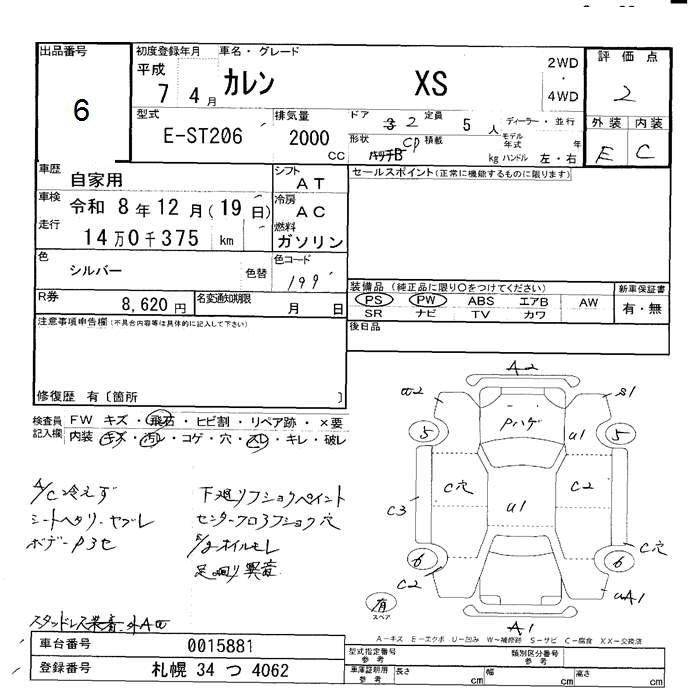 出品番号 初度登録年月 車名・グレード 2WD・4WD 評価点
6 平成 7 4月 カレン XS 2
型式 排気量 ドア 定員 ディーラー・並行 外装 内装
E-ST206 2000 CC 3 2 5人 モデル年式 年 E C
形状 ハッチB CP 積載 kg ハンドル 左・右
車歴 自家用 シフト AT セールスポイント(正常に機能するものに限ります)
車検 令和 8年12月(19日) 冷房 AC
走行 14万0千375 km 燃料 ガソリン
色 シルバー 色替 色コード 199
装備品(純正品に限り○をつけてください) 新車保証書
R券 8,620円 名変通知期限 月 日 PS PW ABS エアB AW 有・無
SR ナビ TV カワ
注意事項申告欄(不具合内容等は具体的に記入して下さい) 後日品
修復歴 有〔箇所 〕
検査員記入欄 FW キズ・飛石・ヒビ割・リペア跡・×要
内装 キズ・汚レ・コゲ・穴・スレ・キレ・破レ
A/C冷えず
シートヘタリ-ヤブレ
ボデーP3セ
下廻リフショクペイント
センターフロアフショク穴
E/gオイルモレ
足廻り異音
A2
a2 S1
Pハゲ
5 U1 5
C穴 C2
C3 U1
C穴
6 6
C2 UA1
有
スペア
A1
A-キズ E-エクボ U-凹ミ W-補修跡 S-サビ C-腐食 XX-交換済
車台番号 0015881 型式指定番号 参考 類別区分番号 参考
登録番号 札幌 34 つ 4062 車庫証明用 参考 長さ cm 幅 cm 高さ cm